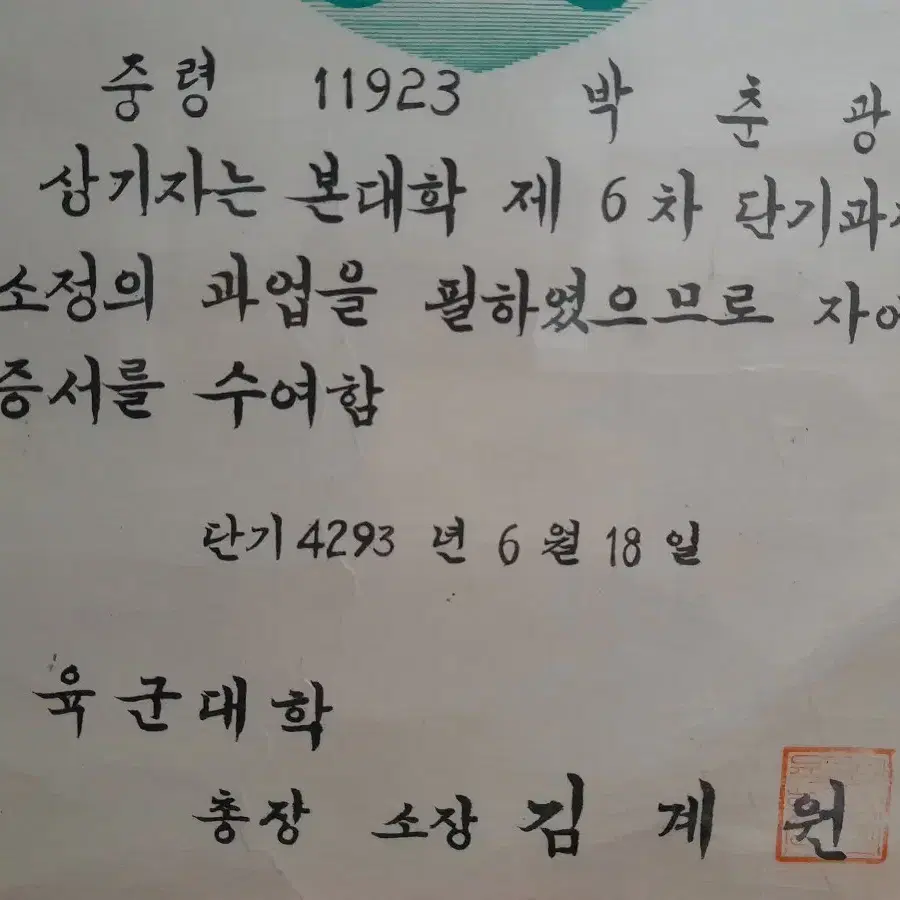 중령 11923 박 춘 광
상기자는 본대학 제 6 차 단기과
소정의 과업을 필하였으므로 자
증서를 수여함
단기 4293 년 6 월 18 일
육군대학
총장 소장 김 계 원